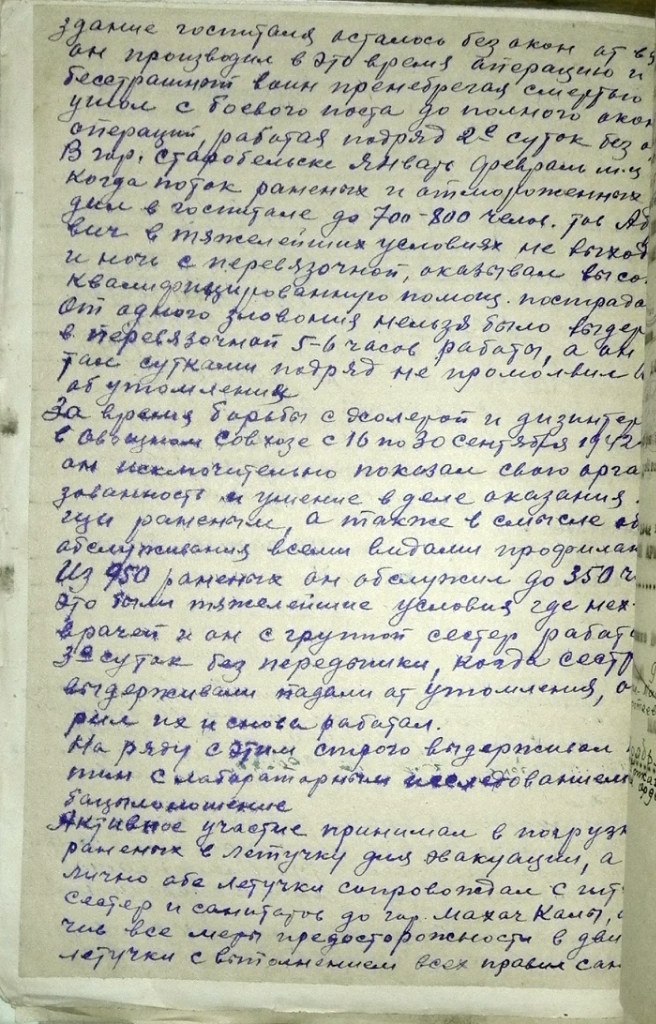 здание госпиталя осталось без окон от вз
он производил в это время операцию и
бесстрашный воин пренебрегая смертью
ушол с боевого поста до полного окон
операций, работая подряд 2е суток без о
В гор. Старобельске Январь Февраль м-ц
когда поток раненых и отмороженных
дил в госпитале до 700-800 челов. тов Аб
вич в тяжелейших условиях не выход
и ночь с перевязочной, оказывал высо
квалифицированную помощ. пострада
От одного зловония нельзя было выдер
в перевязочной 5-6 часов работы, а он
там сутками подряд не промолвил
об утомлении
За время борьбы с холерой и дизинтер
в Овощном Совхозе с 16 по 30 сентября 1942
он исключительно показал свою орга
зованность и умение в деле оказания
щи раненым, а также в смысле об
обслуживания всеми видами профилак
Из 950 раненых он обслужил до 350 ч
Это были тяжелейшие условия где нех
врачей и он с группой сестер работа
3е суток без передышки, когда сестр
выдерживали падали от утомления, о
рил их и снова работал.
На ряду с этим строго выдерживал
тин с лабараторным исследованием
бацылоношение
Активное участие принимал в погрузк
раненых в летучку для эвакуации, а
лично обе летучки сопровождал с
сестер и санитаров до гор. Махач Калы,
чив все меры предосторожности в дви
летучки с выполнением всех правил сан